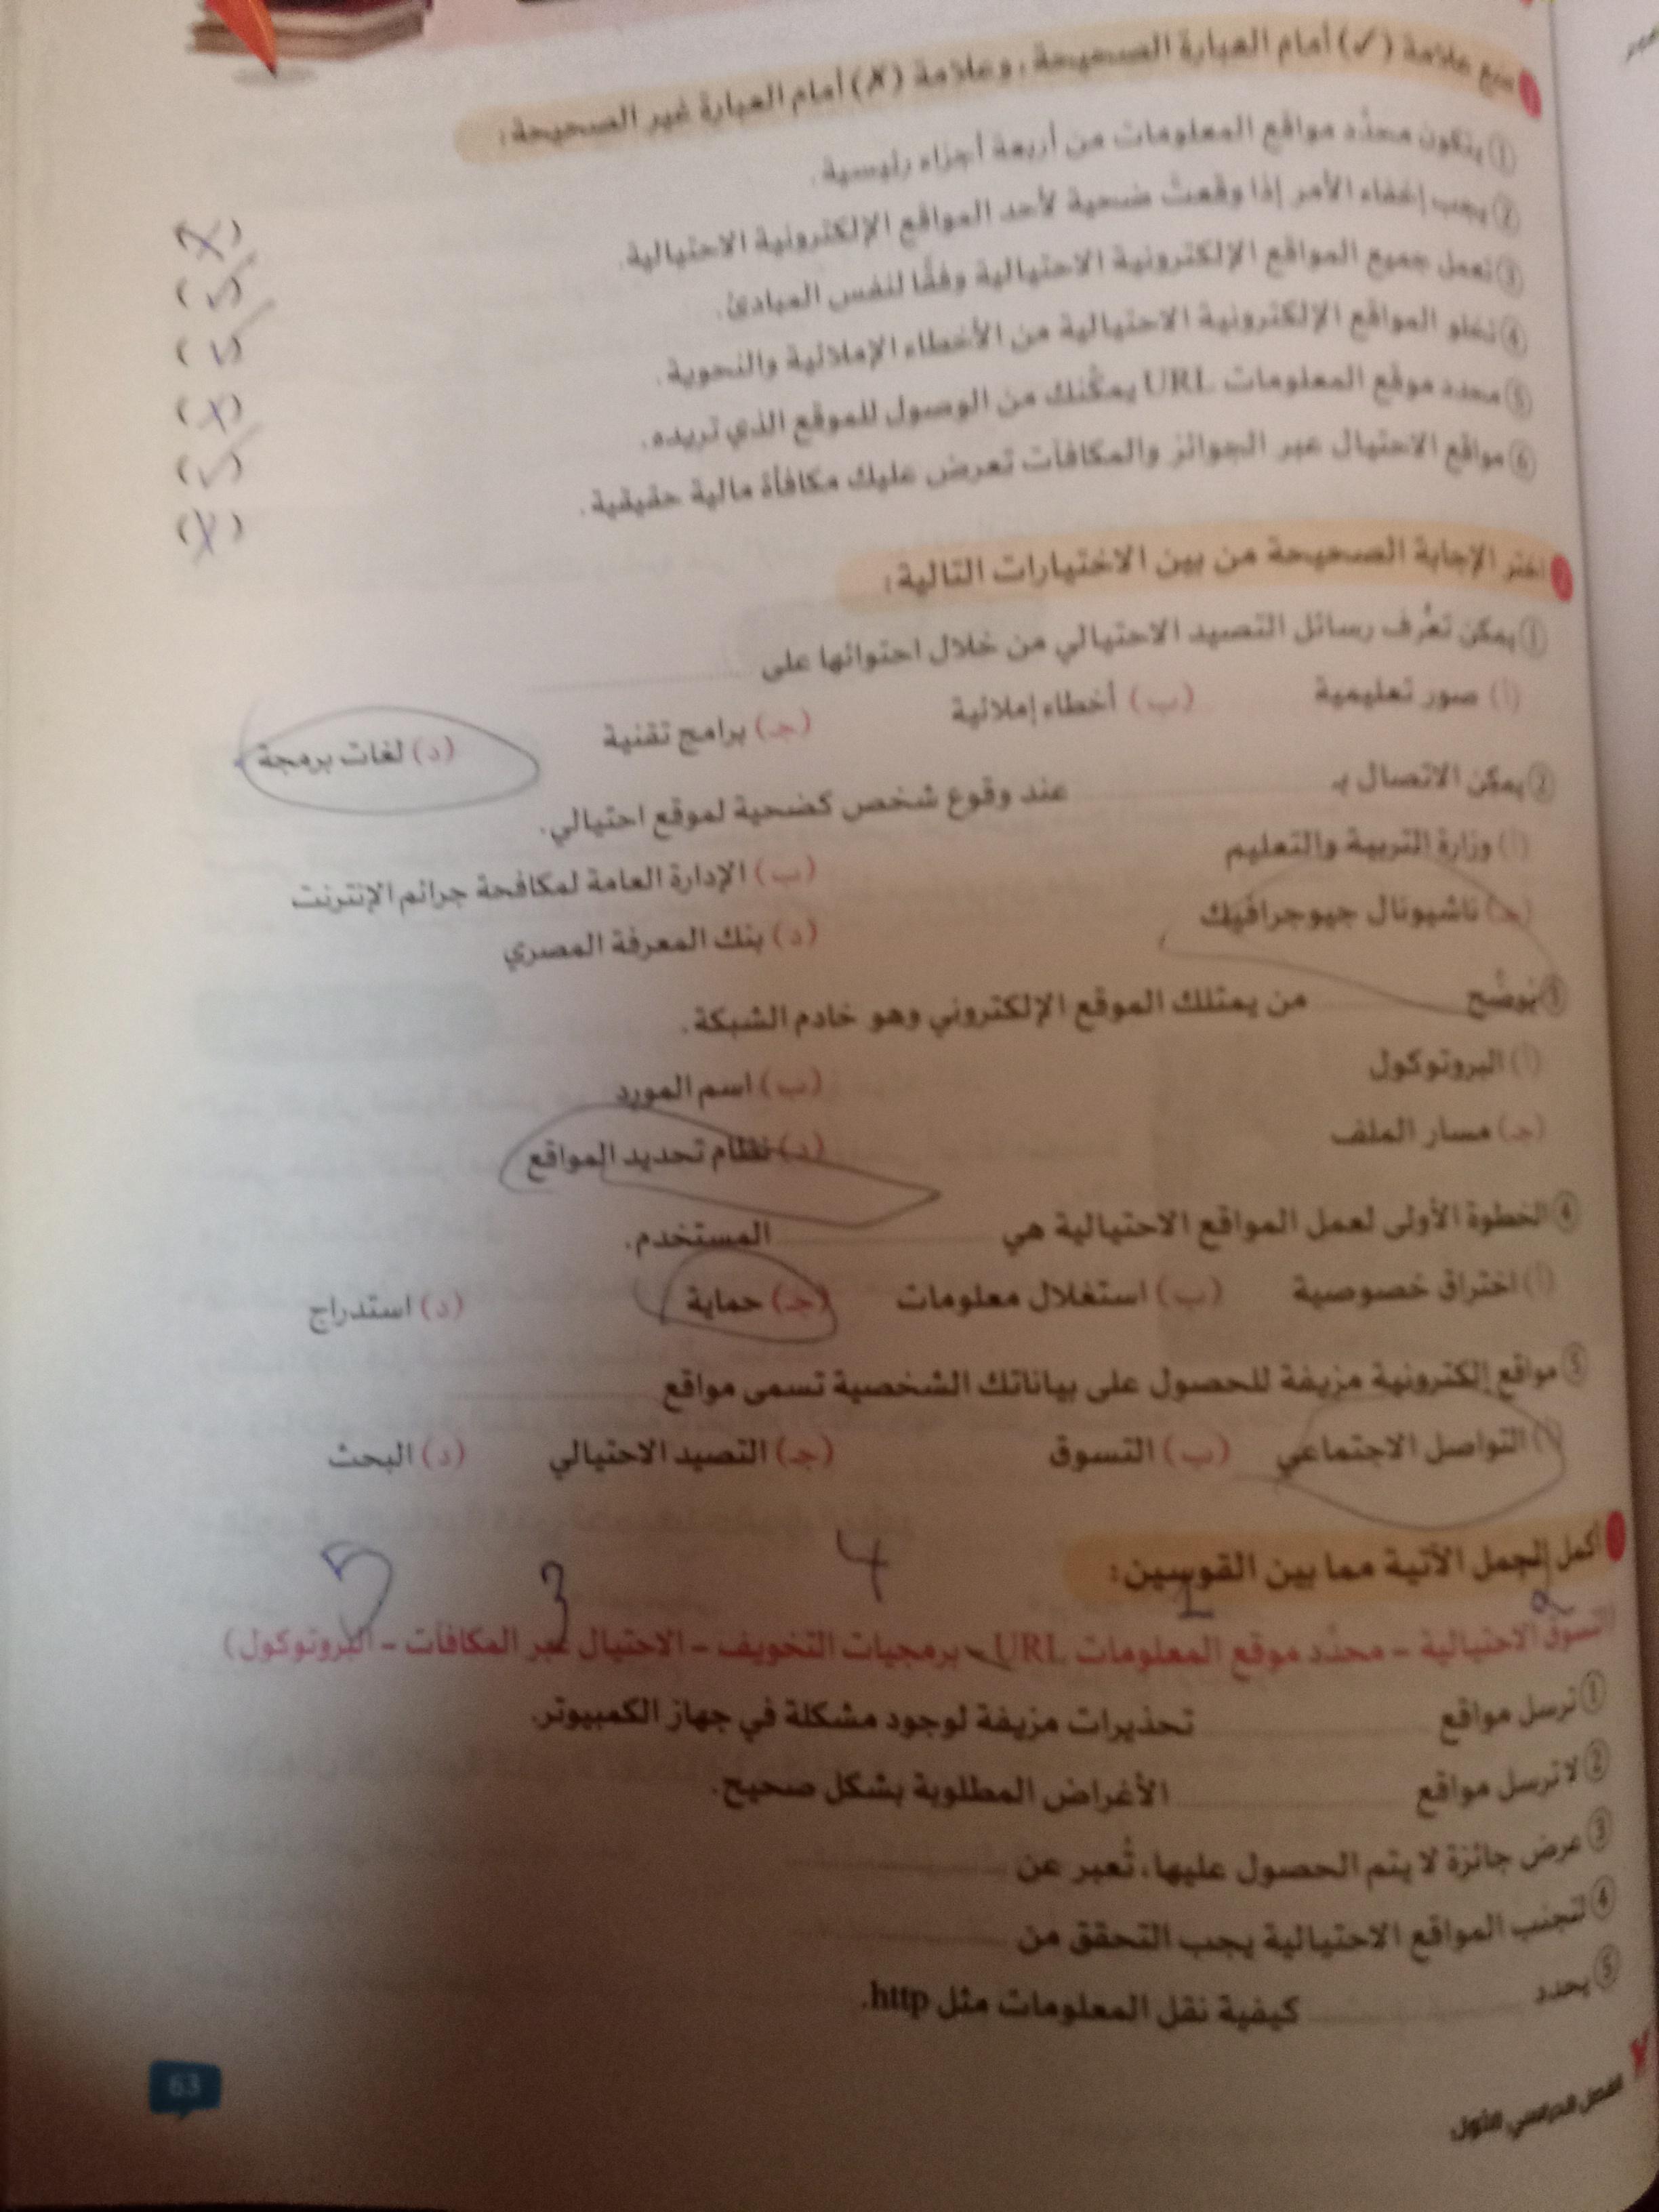 ضع علامة (✓) أمام العبارة الصحيحة، وعلامة (✗) أمام العبارة غير الصحيحة:
① يتكون محدِّد مواقع المعلومات من أربعة أجزاء رئيسية. (✗)
② يجب إخفاء الأمر إذا وقعتَ ضحية لأحد المواقع الإلكترونية الاحتيالية. (✓)
③ تعمل جميع المواقع الإلكترونية الاحتيالية وفقًا لنفس المبادئ. (✓)
④ تخلو المواقع الإلكترونية الاحتيالية من الأخطاء الإملائية والنحوية. (✗)
⑤ محدد موقع المعلومات URL يمكِّنك من الوصول للموقع الذي تريده. (✓)
⑥ مواقع الاحتيال عبر الجوائز والمكافآت تعرض عليك مكافأة مالية حقيقية. (✗)
اختر الإجابة الصحيحة من بين الاختيارات التالية:
① يمكن تعرُّف رسائل التصيد الاحتيالي من خلال احتوائها على
(أ) صور تعليمية (ب) أخطاء إملائية (جـ) برامج تقنية (د) لغات برمجة
② يمكن الاتصال بـ عند وقوع شخص كضحية لموقع احتيالي.
(أ) وزارة التربية والتعليم (ب) الإدارة العامة لمكافحة جرائم الإنترنت
(جـ) ناشيونال جيوجرافيك (د) بنك المعرفة المصري
③ يُوضِّح من يمتلك الموقع الإلكتروني وهو خادم الشبكة.
(أ) البروتوكول (ب) اسم المورد
(جـ) مسار الملف (د) نظام تحديد المواقع
④ الخطوة الأولى لعمل المواقع الاحتيالية هي المستخدم.
(أ) اختراق خصوصية (ب) استغلال معلومات (جـ) حماية (د) استدراج
⑤ مواقع إلكترونية مزيفة للحصول على بياناتك الشخصية تسمى مواقع
(أ) التواصل الاجتماعي (ب) التسوق (جـ) التصيد الاحتيالي (د) البحث
أكمل الجمل الآتية مما بين القوسين:
2 1 4 3
(التسوق الاحتيالية – محدِّد موقع المعلومات URL – برمجيات التخويف – الاحتيال عبر المكافآت – البروتوكول)
① ترسل مواقع تحذيرات مزيفة لوجود مشكلة في جهاز الكمبيوتر.
② لا ترسل مواقع الأغراض المطلوبة بشكل صحيح.
③ عرض جائزة لا يتم الحصول عليها، تُعبر عن
④ لتجنب المواقع الاحتيالية يجب التحقق من
⑤ يحدد كيفية نقل المعلومات مثل http.
الفصل الدراسي الأول
63